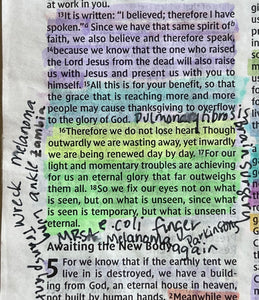 at work in you.
13It is written: "I believed; therefore I have
spoken." Since we have that same spirit of
faith, we also believe and therefore speak,
14because we know that the one who raised
the Lord Jesus from the dead will also raise
us with Jesus and present us with you to
himself. 15All this is for your benefit, so that
the grace that is reaching more and more
people may cause thanksgiving to overflow
to the glory of God. Pulmonary fibrosis
16Therefore we do not lose heart. Though
outwardly we are wasting away, yet inwardly
we are being renewed day by day. 17For our
light and momentary troubles are achieving
for us an eternal glory that far outweighs
them all. 18So we fix our eyes not on what
is seen, but on what is unseen, since what
is seen is temporary, but what is unseen is
eternal. e coli finger
MRSA Melanoma Parkinsons
Awaiting the New Body again
5 For we know that if the earthly tent we
live in is destroyed, we have a build-
ing from God, an eternal house in heaven,
not built by human hands. 2Meanwhile we
wreck melanoma
ankle Zambia
surgery